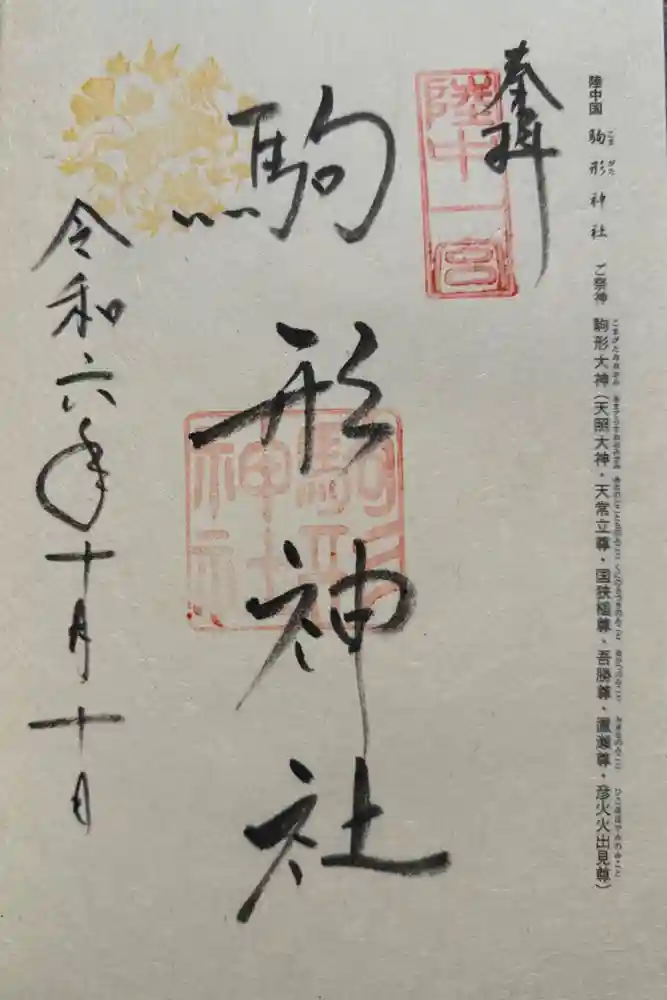 陸中国 駒形神社 ご祭神 駒形大神(天照大神・天常立尊・国狭槌尊・吾勝尊・置瀬尊・彦火火出見尊)
奉拝
陸中一宮
駒形神社
駒形神社
令和六年十月十日